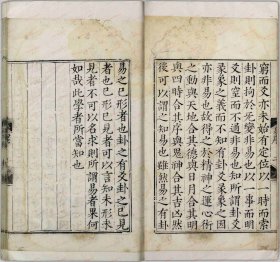 窮而爻亦未始有定位以一時而索
卦則拘於无變非易也以一事而明
爻則窒而不通非易也知所謂卦爻
彖象之義而不知有卦爻彖象之用
亦非易也故得之於精神之運心術
之動與天地合其德與日月合其明
與四時合其序與鬼神合其吉凶然
後可以謂之知易也雖然易之有卦
易之已形者也卦之有爻卦之已見
者也已形已見者可以言知未形未
見者不可以名求則所謂易者果何
如哉此學者所當知也